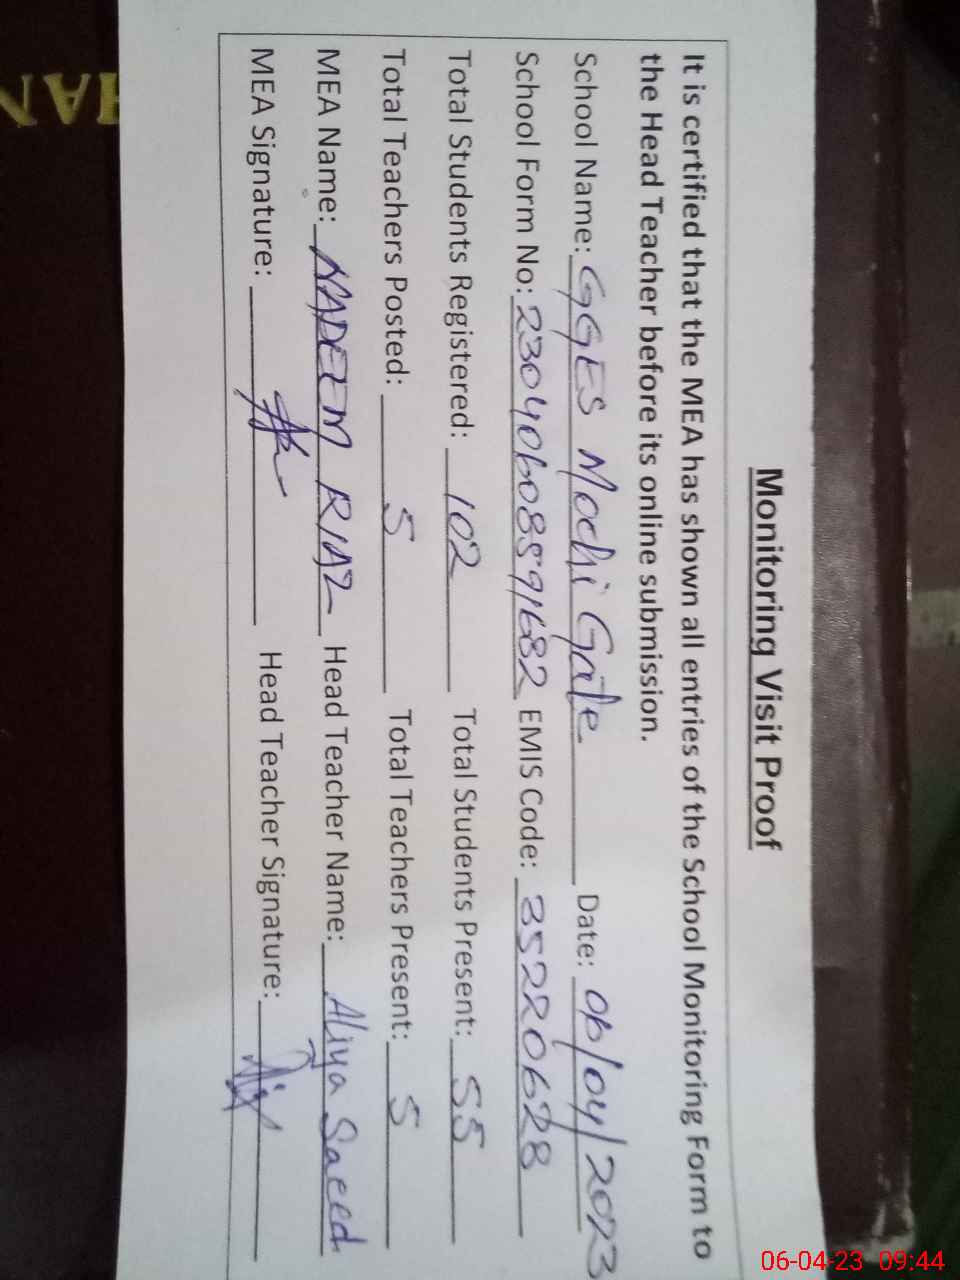 Monitoring Visit Proof
It is certified that the MEA has shown all entries of the School Monitoring Form to
the Head Teacher before its online submission.
School Name: GGES Mochi Gate Date: 06/04/2023
School Form No: 230406085891682 EMIS Code: 35220628
Total Students Registered: 102 Total Students Present: 55
Total Teachers Posted: 5 Total Teachers Present: 5
MEA Name: NADEEM RIAZ Head Teacher Name: Aliya Saeed
MEA Signature: Head Teacher Signature:
HAN
06-04-23 09:44